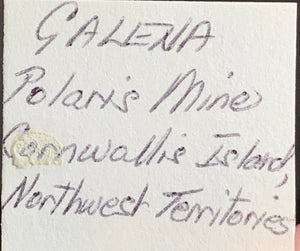 GALENA
Polaris Mine
Cornwallis Island,
Northwest Territories